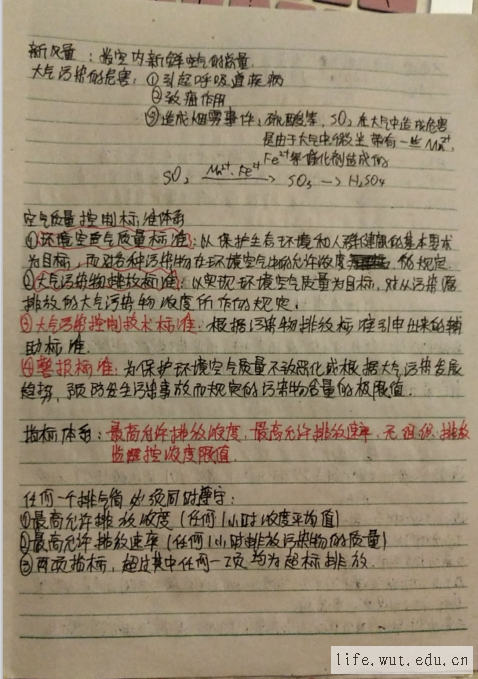 新风量:指室内新鲜空气的质量.
大气污染的危害:①引起呼吸道疾病
②致癌作用
③造成烟雾事件:硫酸雾,SO₂在大气中造成危害
是由于大气中微尘带有一些Mn²⁺,
Fe²⁺等催化剂造成的
SO₂ Mn²⁺·Fe²⁺→ SO₃ → H₂SO₄
空气质量控制标准体系
①环境空气质量标准:以保护生态环境和人群健康的基本要求
为目标,而对各种污染物在环境空气中的允许浓度 的规定.
②大气污染物排放标准:以实现环境空气质量为目标,对从污染源
排放的大气污染物浓度所作的规定.
③大气污染控制技术标准:根据污染物排放标准引申出来的辅
助标准.
④警报标准:为保护环境空气质量不致恶化或根据大气污染发展
趋势,预防发生污染事故而规定的污染物含量的极限值.
指标体系:最高允许排放浓度,最高允许排放速率,无组织排放
监控浓度限值.
任何一个排气筒必须同时遵守:
①最高允许排放浓度(任何1小时浓度平均值)
②最高允许排放速率(任何1小时排放污染物的质量)
③两项指标,超过其中任何一项均为超标排放.
life.wut.edu.cn